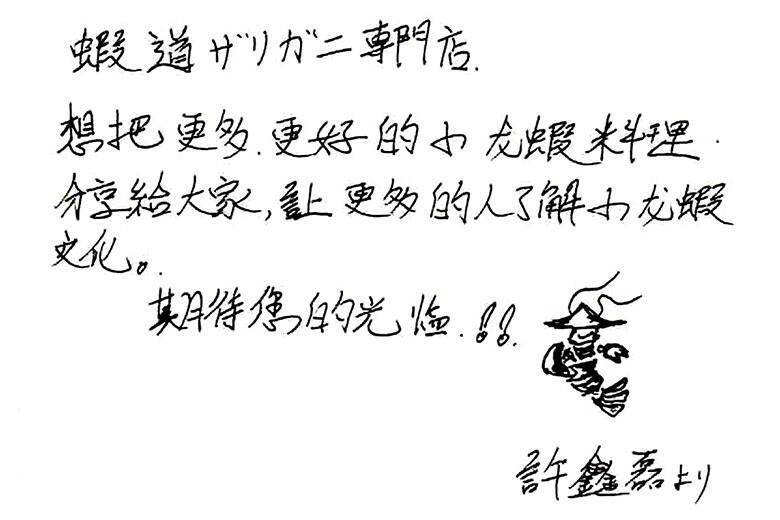 蝦道ザリガニ専門店.
想把更多.更好的小龙蝦料理.
分享給大家,讓更多的人了解小龙蝦
文化。.
期待您的光臨.!!.
許鑫磊より